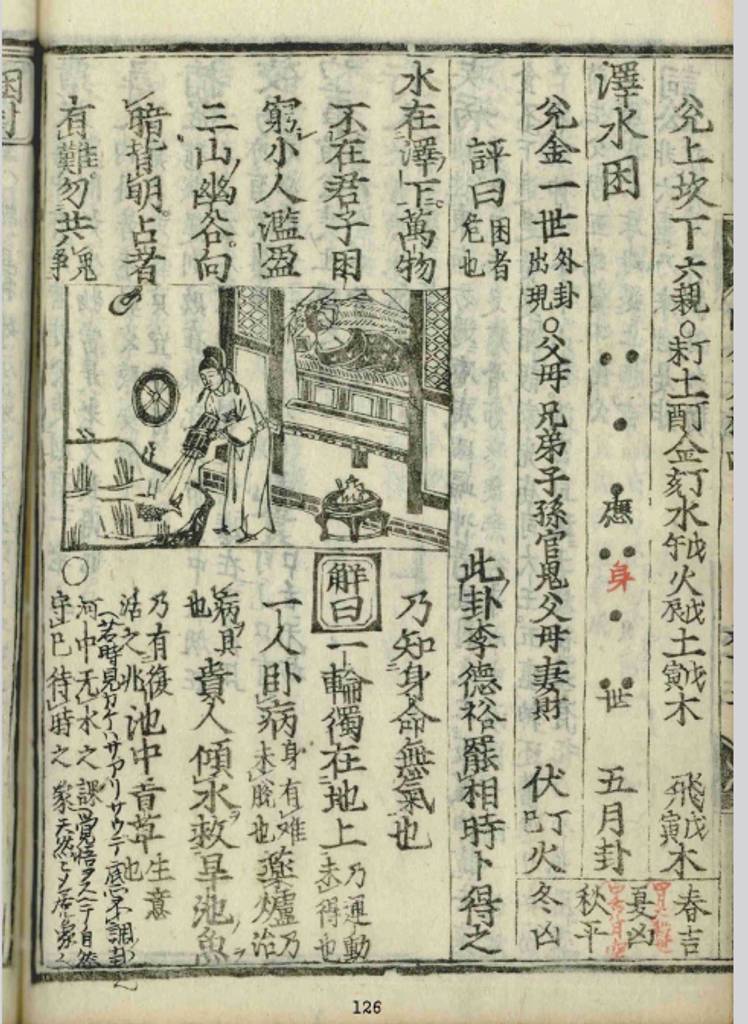 兊上坎下六親○未丁土酉丁金亥丁水午戊火辰戊土寅戊木 飛戊寅木
春吉
澤水困 應 身 世 五月卦
夏凶
秋平
兊金一世外卦出現○父母兄弟子孫官鬼父母妻財 伏丁巳火
冬凶
評曰困者危也 此卦李德裕罷相時卜得之
水在澤下萬物
不在君子困
窮小人濫盈
三山幽谷向
暗背明占者
有難勿共鬼爭
乃知身命無氣也
解曰 一輪獨在地上乃運動未得也
一人臥病身有難未脫也藥爐乃治
病具也貴人傾水救旱池魚
乃有復活之兆池中青草生意也
河中无水之課
守已待時之象
126